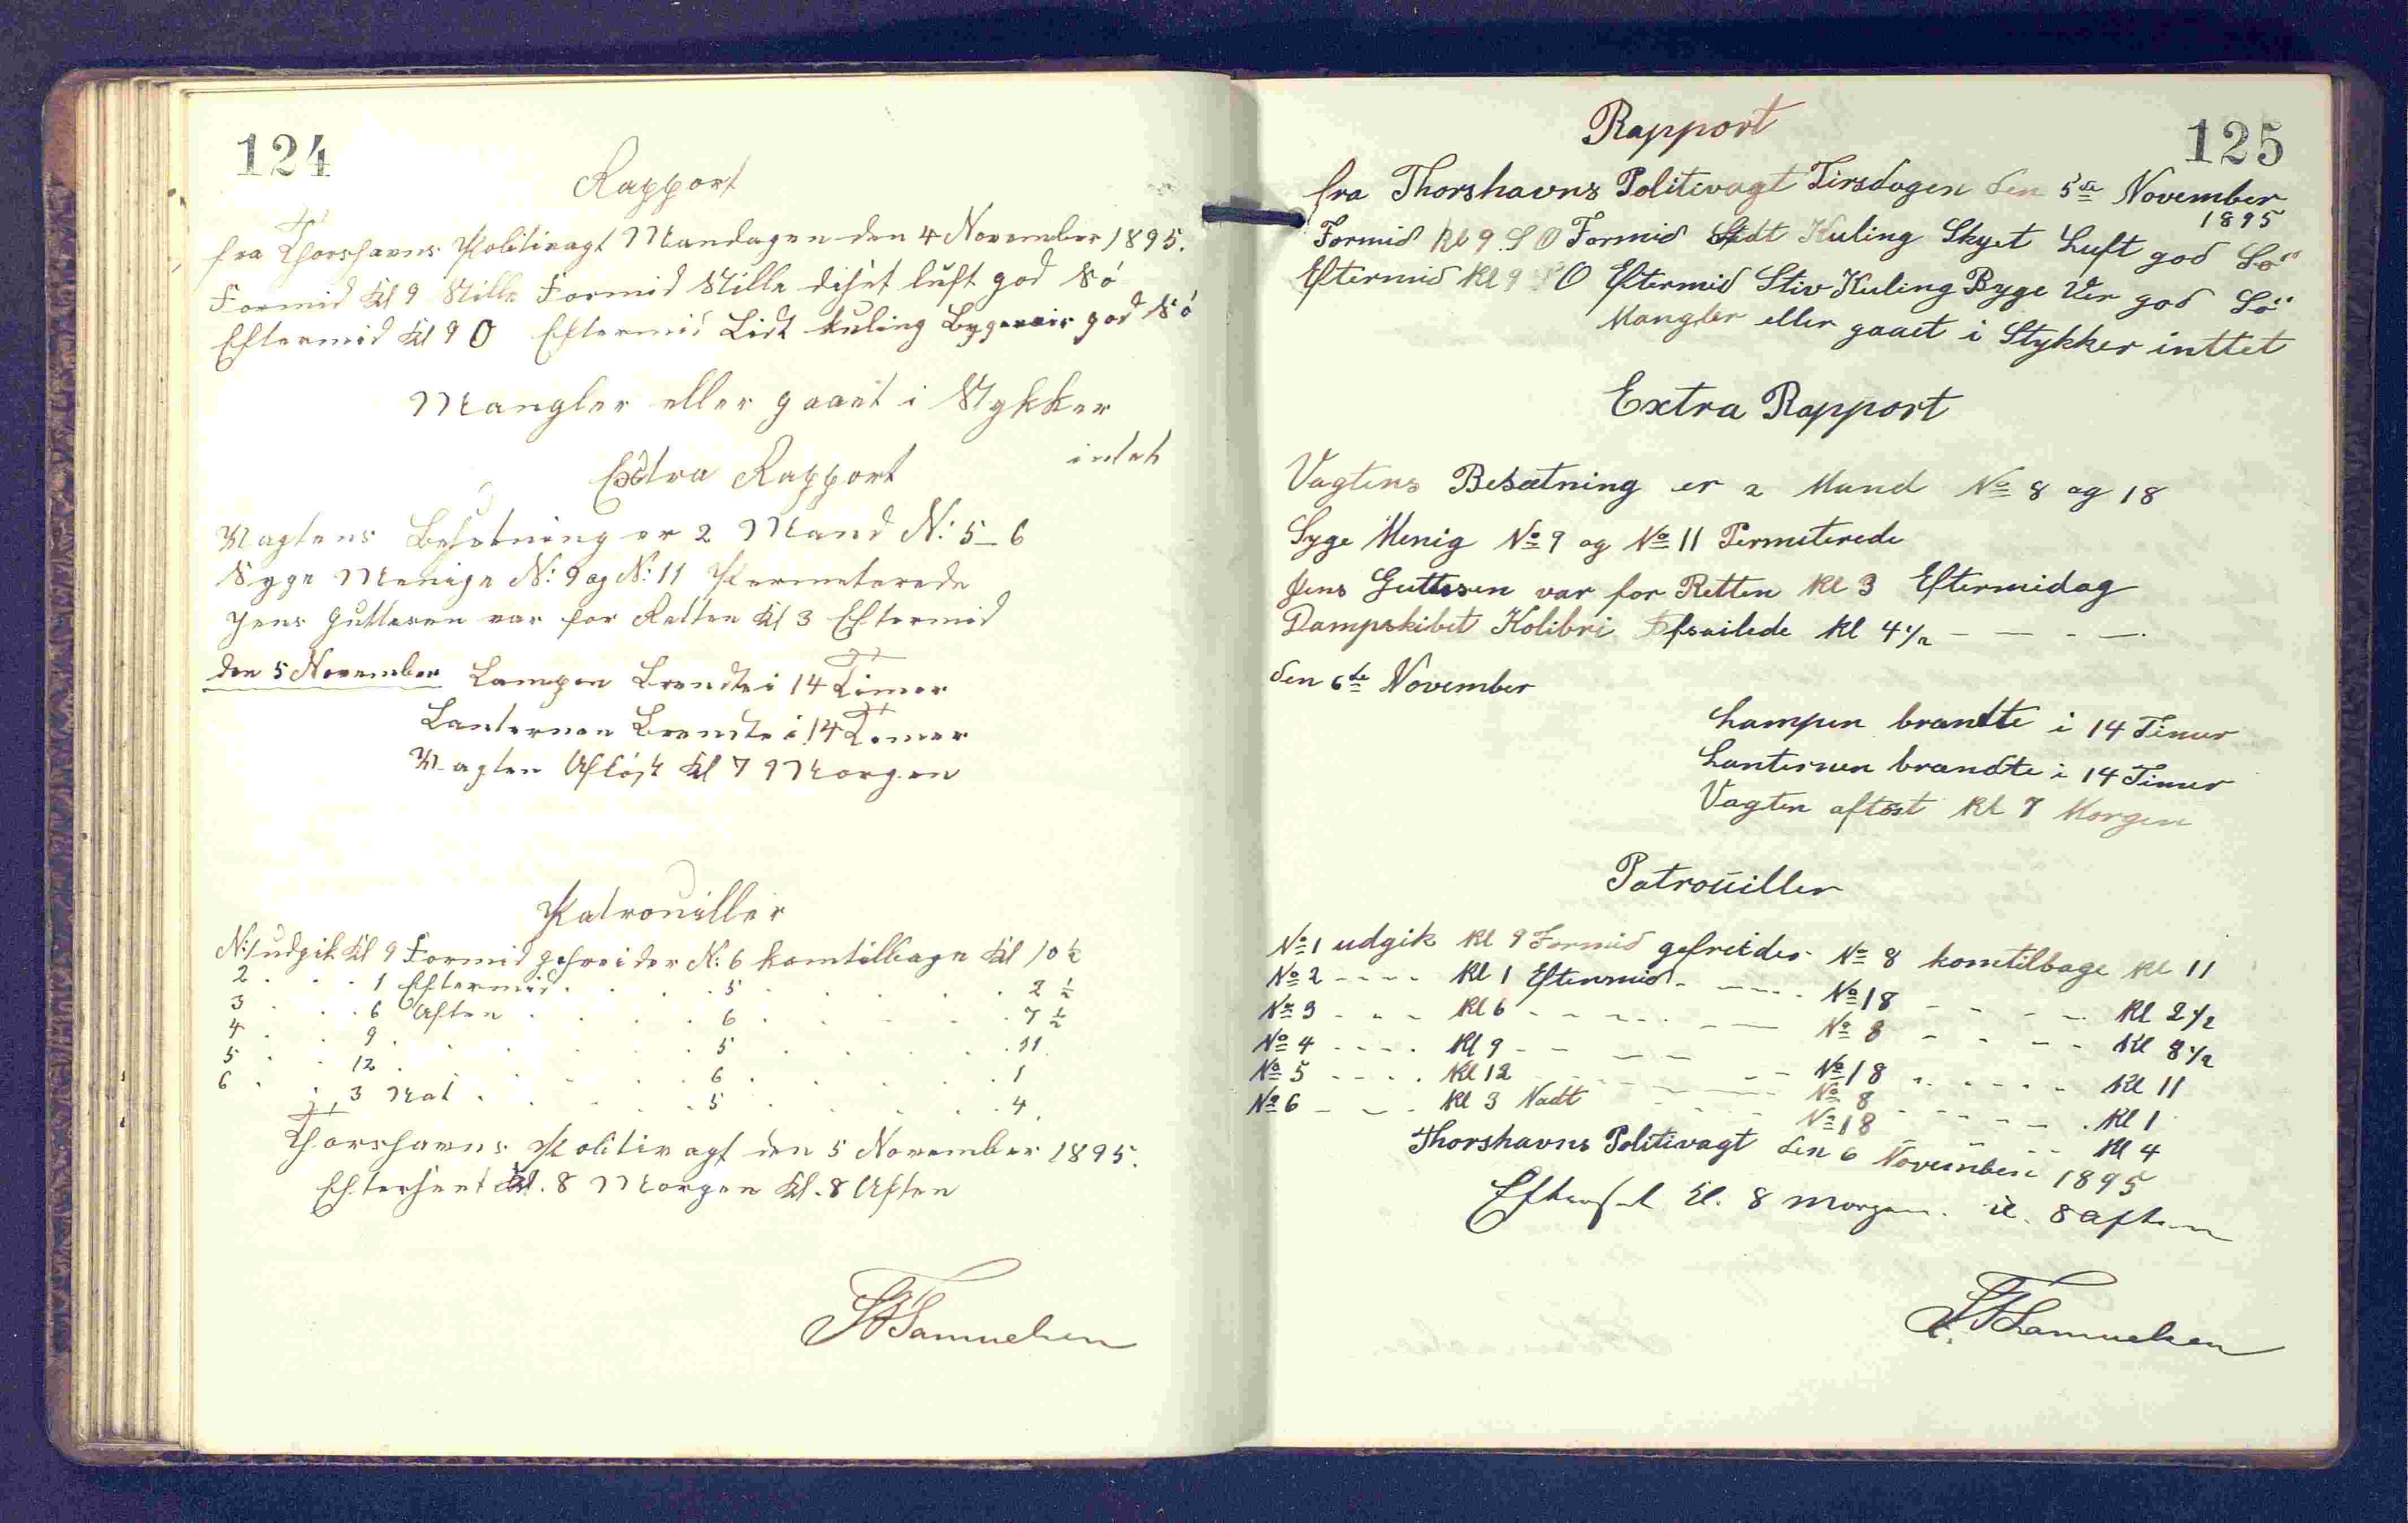 124
Rapport
fra Thorshavns Politivagt Mandagen den 4 November 1895.
Formid Kl 9 Stille Formid Stille diset luft god Sö
Eftermid Kl 9 O Eftermid Lidt kuling Bygeveir god Sö
Mangler eller gaaet i Stykker
intet
Extra Rapport
Vagtens Besetning er 2 Mand N: 5_6
Syge Menige N: 9 og N: 11 Permeterede
Jens Guttesen var for Retten Kl 3 Eftermid
den 5 November Lampen Brendte i 14 Timer
Lanternen Brendte i 14 Timer
Vagten Aflöst Kl 7 Morgen
Patrouiller
N:1 udgik Kl 9 Formid gefreider N: 6 kom tilbage Kl 10 ½
2 . . . 1 Eftermid . . . . 5 . . . . . 2 ½
3 . . . 6 Aften . . . . 6 . . . . . 7 ½
4 . . 9 . . . . . 5 . . . . . 11
5 . . 12 . . . . . 6 . . . . . 1
6 . . 3 Nat . . . . 5 . . . . . 4.
Thorshavns Politivagt den 5 November 1895.
Efterseet Kl. 8 Morgen Kl. 8 Aften
Samuelsen
125
Rapport
fra Thorshavns Politivagt Tirsdagen den 5te November
1895
Formid Kl 9 S O Formid Lidt Kuling Skyet Luft god Sö
Eftermid Kl 9 S O Eftermid Stiv Kuling Byge Ver god Sö
Mangler eller gaaet i Stykker inttet
Extra Rapport
Vagtens Besætning er 2 Mand No 8 og 18
Syge Menig No 9 og No 11 Permeterede
Jens Guttesen var for Retten Kl 3 Eftermidag
Dampskibet Kolibri Afsailede Kl 4 1/2 — — - —.
den 6te November
Lampen brandte i 14 Timer
Lanternen brandte i 14 Timer
Vagten aflöst Kl 7 Morgen
Patrouiller
No 1 udgik Kl 9 Formid gefreider No 8 komtilbage Kl 11
No 2 - - - - Kl 1 Eftermid - - - - No 18 - - - - Kl 2 1/2
No 3 - - - Kl 6 - - - - - - No 8 - - - - Kl 8 1/2
No 4 - - - - Kl 9 - - - - - - No 18 - - - - Kl 11
No 5 - - - - Kl 12 - - - - - No 8 - - - - Kl 1
No 6 - - - Kl 3 Nadt - - - - No 18 - - - - Kl 4
Thorshavns Politivagt den 6 November 1895
Efterset Kl. 8 Morgen. Kl. 8 Aften
Samuelsen